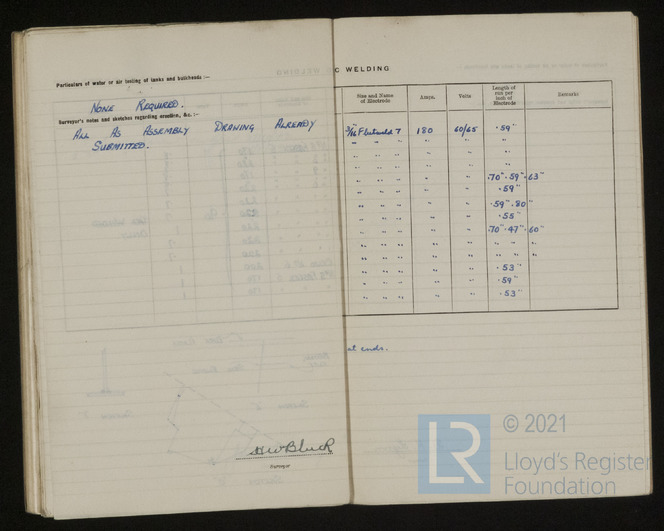 Particulars of water or air testing of tanks and bulkheads :—
NONE REQUIRED.
Surveyor's notes and sketches regarding erection, &c. :—
ALL AS ASSEMBLY DRAWING ALREADY
SUBMITTED.
Surveyor
C WELDING
Size and Name of Electrode Amps. Volts Length of run per inch of Electrode Remarks
3/16 180 60/65 .59"
" " " " " "
" " " " " "
" " " " " "
" " " " " .70" .59" .63"
" " " " " .59"
" " " " " .59" .80"
" " " " " .55"
" " " " " .70" .47" .60"
" " " " " " " "
" " " " " " " "
" " " " " .53"
" " " " " .59"
" " " " " .53"
at ends.
LR
© 2021
Lloyd's Register
Foundation